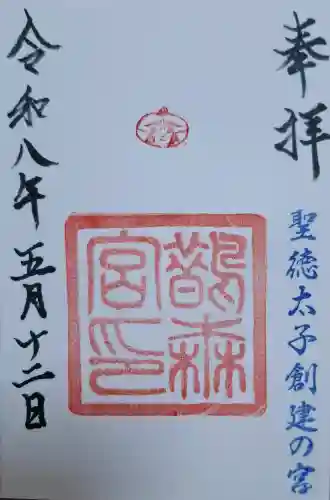 奉拝
聖徳太子創建の宮
鵲森
宮印
令和八年五月十二日